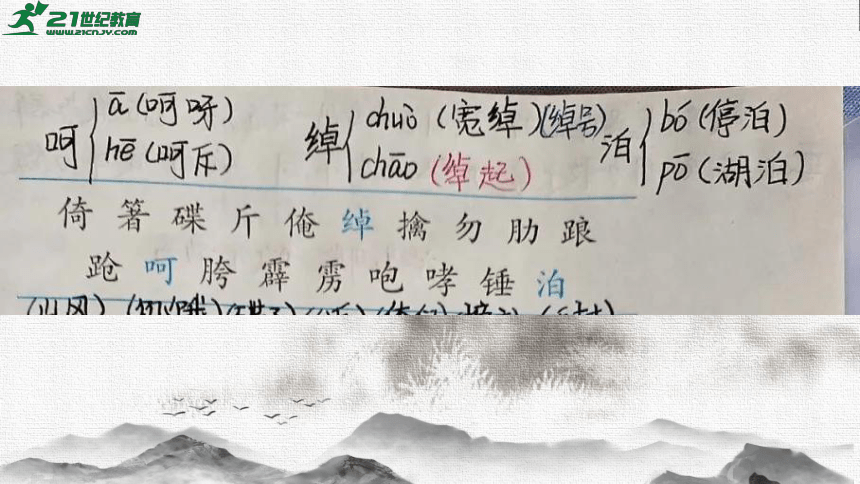 21世纪教育
WWW.21CNJY.COM
呵 ā(呵呀) hē(呵斥)
绰 chuò(宽绰)(绰号) chāo(绰起)
泊 bó(停泊) pō(湖泊)
倚 箸 碟 斤 俺 绰 擒 勿 肋 踉
跄 呵 胯 霹 雳 咆 哮 锤 泊
(山冈)